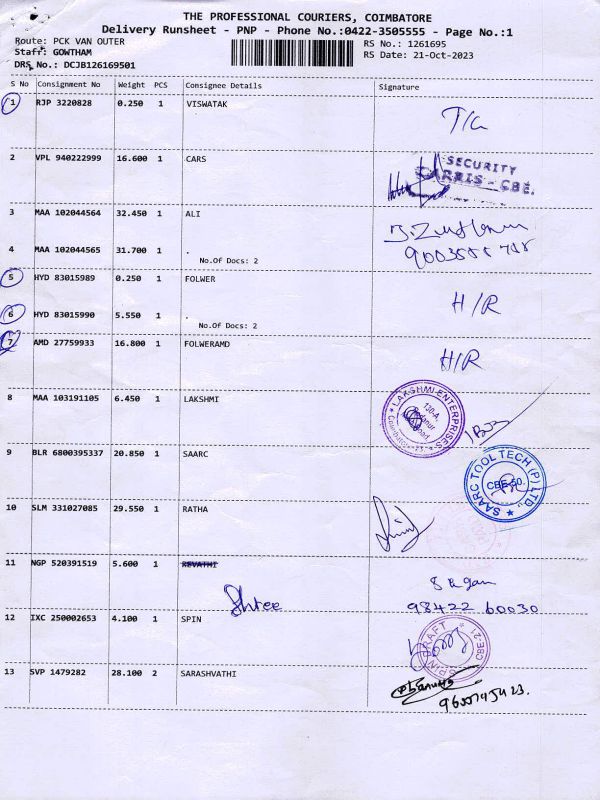 THE PROFESSIONAL COURIERS, COIMBATORE
Delivery Runsheet - PNP - Phone No.:0422-3505555 - Page No.:1
Route: PCK VAN OUTER
Staff: GOWTHAM
DRS No.: DCJB126169501
RS No.: 1261695
RS Date: 21-Oct-2023
S No Consignment No Weight PCS Consignee Details Signature
1 RJP 3220828 0.250 1 VISWATAK
2 VPL 940222999 16.600 1 CARS SECURITY
CBE.
3 MAA 102044564 32.450 1 ALI
4 MAA 102044565 31.700 1 .
No.Of Docs: 2
5 HYD 83015989 0.250 1 FOLWER
H/R
6 HYD 83015990 5.550 1 .
No.Of Docs: 2
7 AMD 27759933 16.800 1 FOLWERAMD H/R
8 MAA 103191105 6.450 1 LAKSHMI LAKSHMI ENTERPRISES
130-A,
Road
9 BLR 6800395337 20.850 1 SAARC SAARC TOOL TECH (P) LTD.,
CBE-50.
10 SLM 331027085 29.550 1 RATHA
11 NGP 520391519 5.600 1 REVATHI
Shree 98422 60030
12 IXC 250002653 4.100 1 SPIN SPIN DRAFT CBE-21
13 SVP 1479282 28.100 2 SARASHVATHI